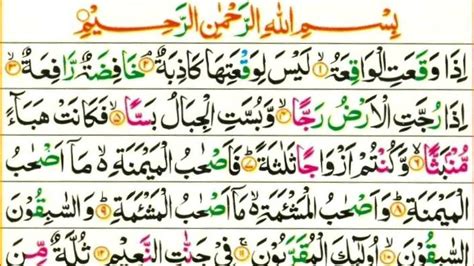 بِسْمِ اللهِ الرَّحْمٰنِ الرَّحِيْمِ
اِذَا وَقَعَتِ الْوَاقِعَةُ ۙ﴿۱﴾ لَيْسَ لِوَقْعَتِهَا كَاذِبَةٌ ۘ﴿۲﴾ خَافِضَةٌ رَّافِعَةٌ ۙ﴿۳﴾
اِذَا رُجَّتِ الْاَرْضُ رَجًّا ۙ﴿۴﴾ وَّبُسَّتِ الْجِبَالُ بَسًّا ۙ﴿۵﴾ فَكَانَتْ هَبَآءً
مُّنْۢبَثًّا ۙ﴿۶﴾ وَّكُنْتُمْ اَزْوَاجًا ثَلٰثَةً ؕ﴿۷﴾ فَاَصْحٰبُ الْمَيْمَنَةِ ۙ۬ مَاۤ اَصْحٰبُ
الْمَيْمَنَةِ ؕ﴿۸﴾ وَاَصْحٰبُ الْمَشْـَٔمَةِ ۙ۬ مَاۤ اَصْحٰبُ الْمَشْـَٔمَةِ ؕ﴿۹﴾ وَالسّٰبِقُوْنَ
السّٰبِقُوْنَ ۚۙ﴿۱۰﴾ اُولٰٓئِكَ الْمُقَرَّبُوْنَ ۚ﴿۱۱﴾ فِيْ جَنّٰتِ النَّعِيْمِ ﴿۱۲﴾ ثُلَّةٌ مِّنَ